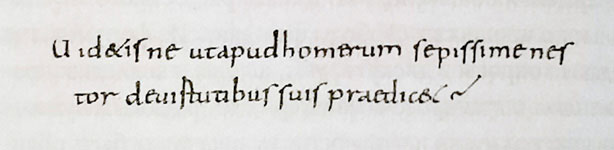 Uid&isne utapudhomerum sepissimenes
tor deuirtutibus suis praedic&